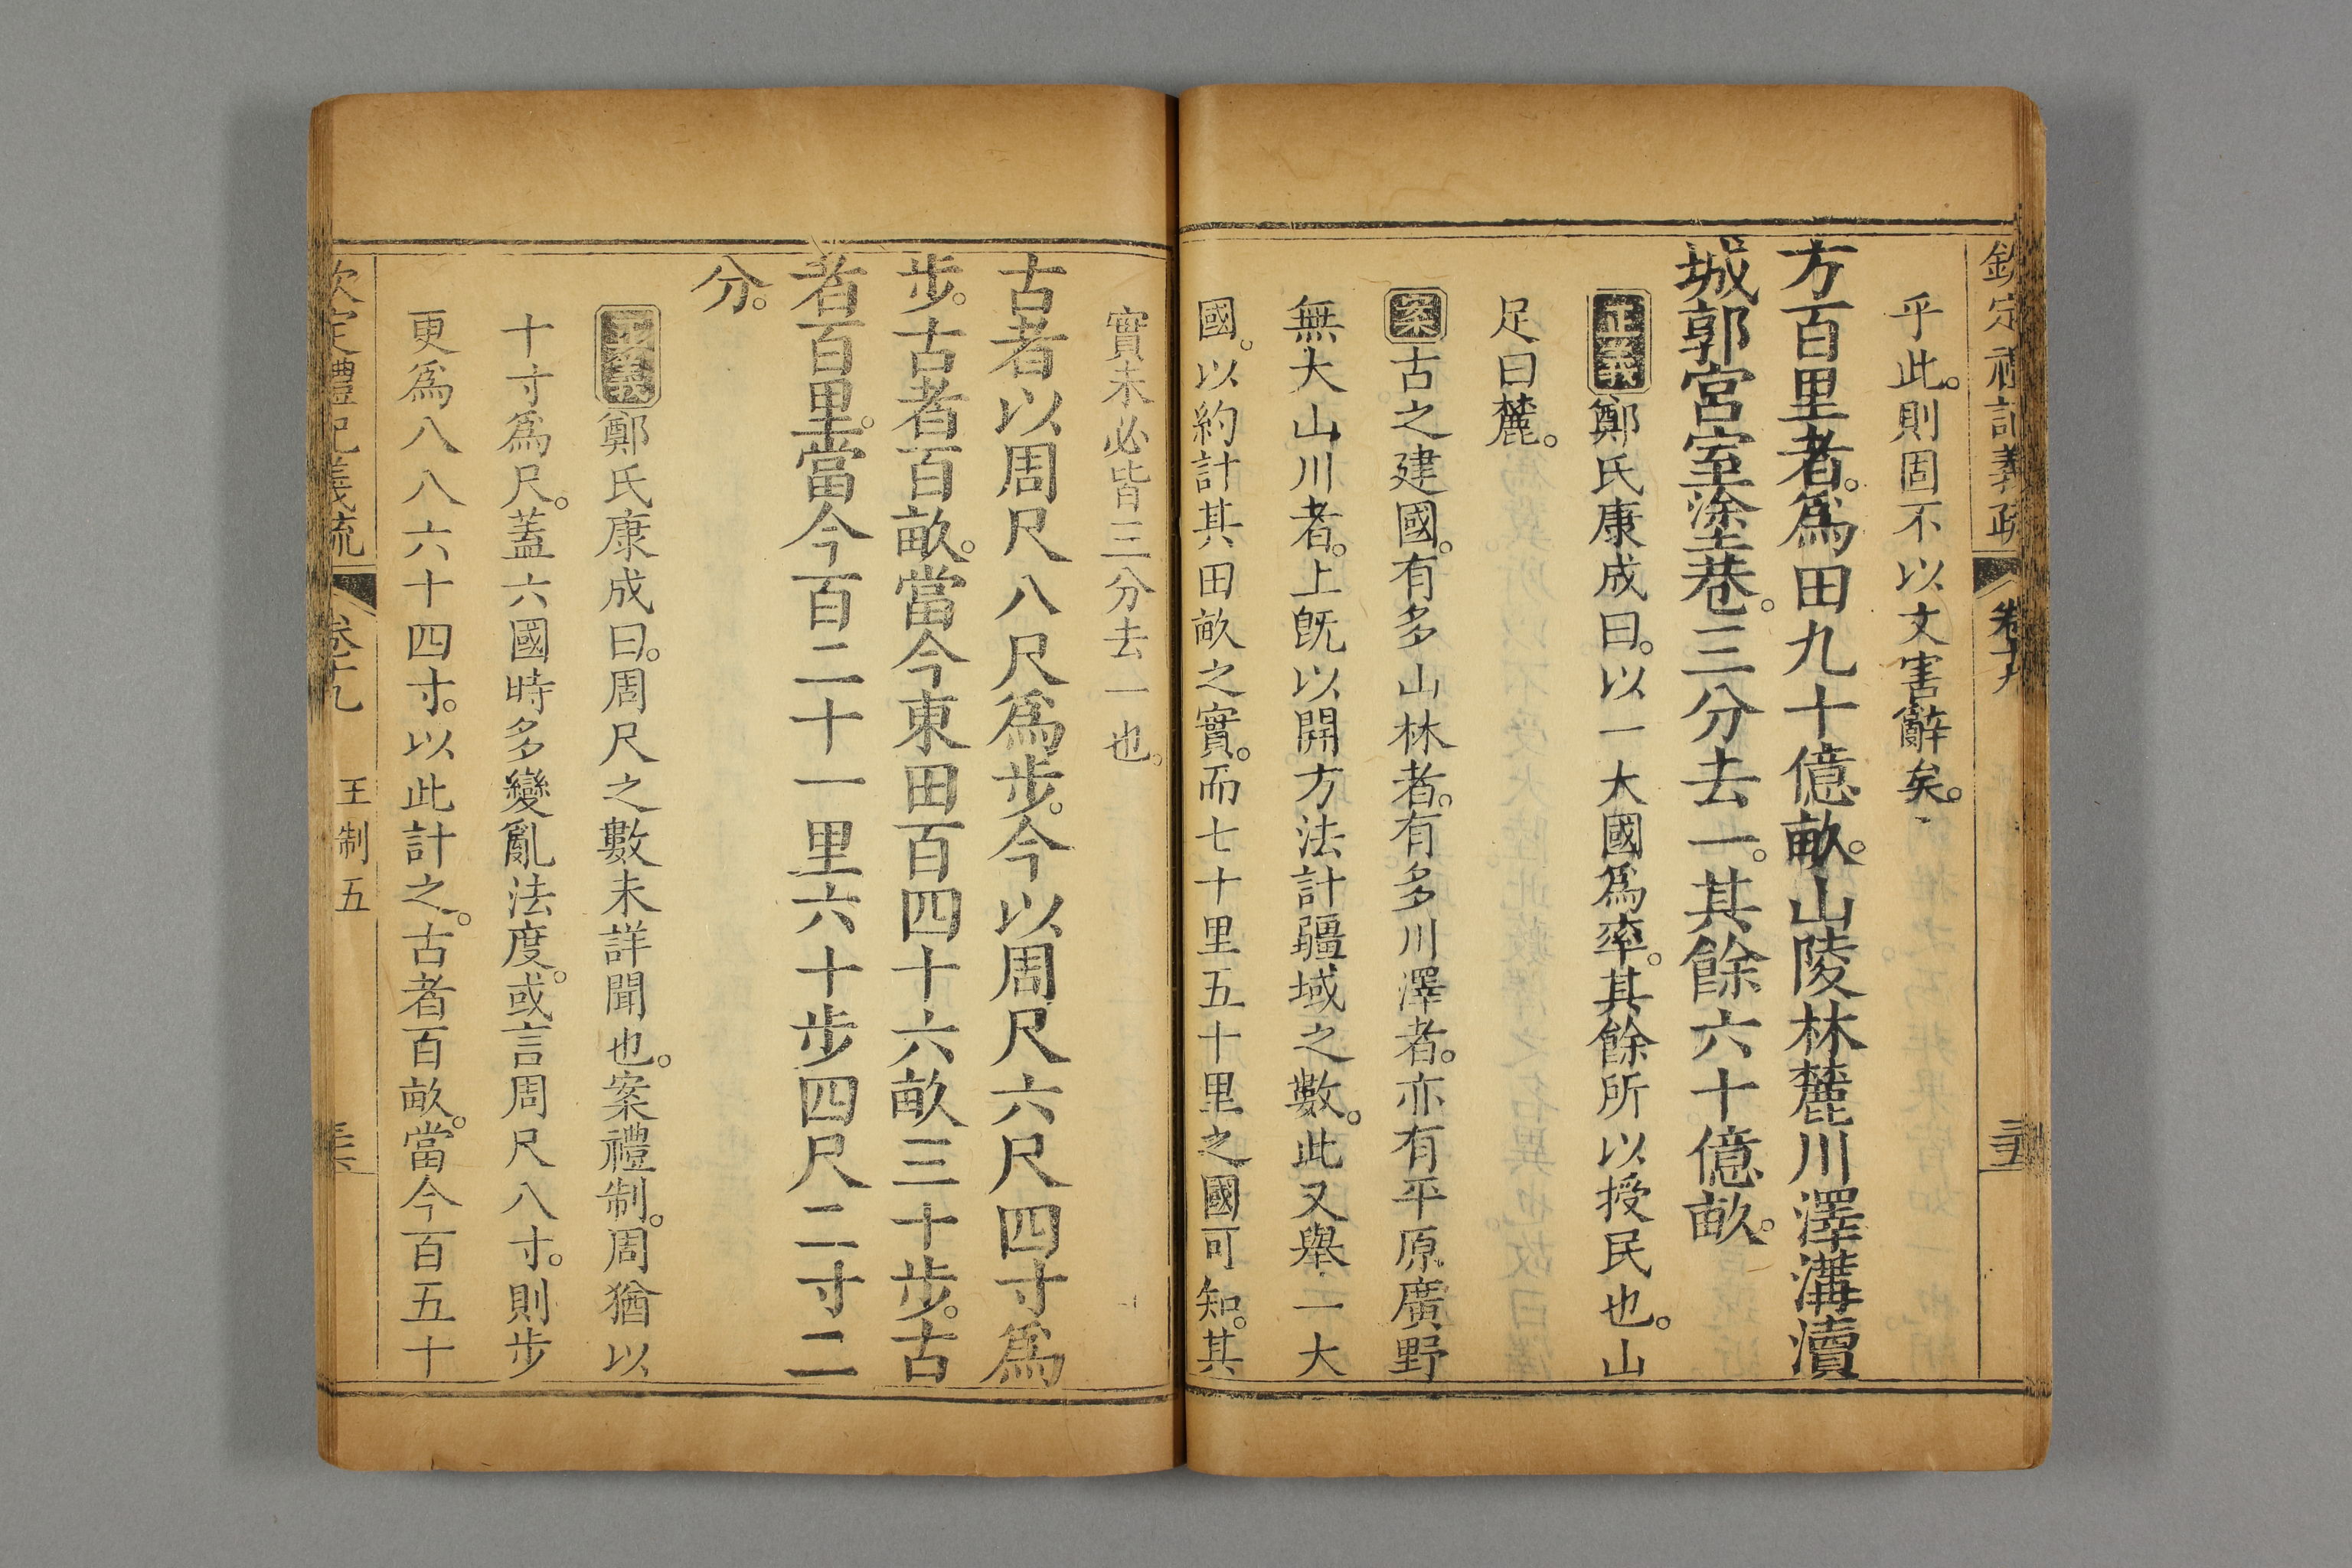 欽定禮記義疏 卷十九
乎此。則固不以文害辭矣。
方百里者。爲田九十億畝。山陵林麓川澤溝瀆
城郭宮室塗巷。三分去一。其餘六十億畝。
正義鄭氏康成曰。以一大國爲率。其餘所以授民也。山
足曰麓。
案古之建國。有多山林者。有多川澤者。亦有平原廣野
無大山川者。上旣以開方法計疆域之數。此又舉一大
國。以約計其田畝之實。而七十里五十里之國可知。其
實未必皆三分去一也。
古者以周尺八尺爲步。今以周尺六尺四寸爲
步。古者百畝。當今東田百四十六畝三十步。古
者百里。當今百二十一里六十步四尺二寸二
分。
正義鄭氏康成曰。周尺之數未詳聞也。案禮制。周猶以
十寸爲尺。蓋六國時多變亂法度。或言周尺八寸。則步
更爲八八六十四寸。以此計之。古者百畝。當今百五十
欽定禮記義疏 卷十九 王制五